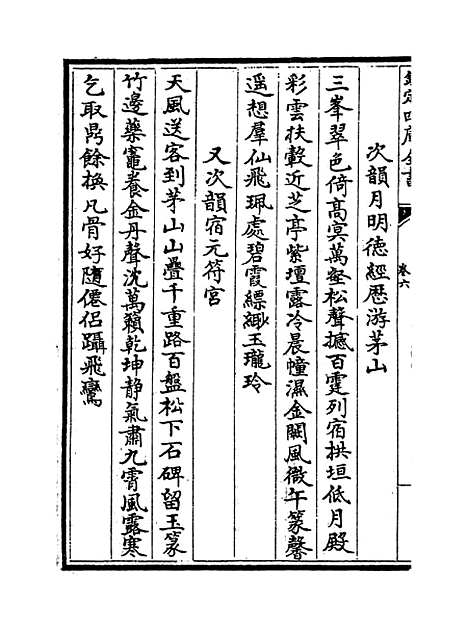 欽定四庫全書
卷六
次韻月明徳經歴游茅山
三峯翠色倚髙㝠萬壑松聲撼百霆列宿拱垣低月殿
彩雲扶轂近芝亭紫壇露冷晨幢濕金闕風微午篆馨
遥想羣仙飛珮處碧霞縹緲玉瓏玲
又次韻宿元符宮
天風送客到茅山山疊千重路百盤松下石碑留玉篆
竹邊藥竈養金丹聲沈萬籟乾坤静氣肅九霄風露寒
乞取鼎餘換凡骨好隨僊侣躡飛鸞